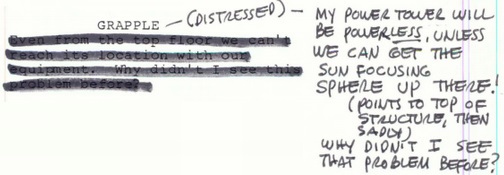 GRAPPLE — (DISTRESSED) —
Even from the top floor we can't
reach its location with our
equipment. Why didn't I see this
problem before?
MY POWER TOWER WILL
BE POWERLESS, UNLESS
WE CAN GET THE
SUN FOCUSING
SPHERE UP THERE!
(POINTS TO TOP OF
STRUCTURE, THEN
SADLY)
WHY DIDN'T I SEE
THAT PROBLEM BEFORE?